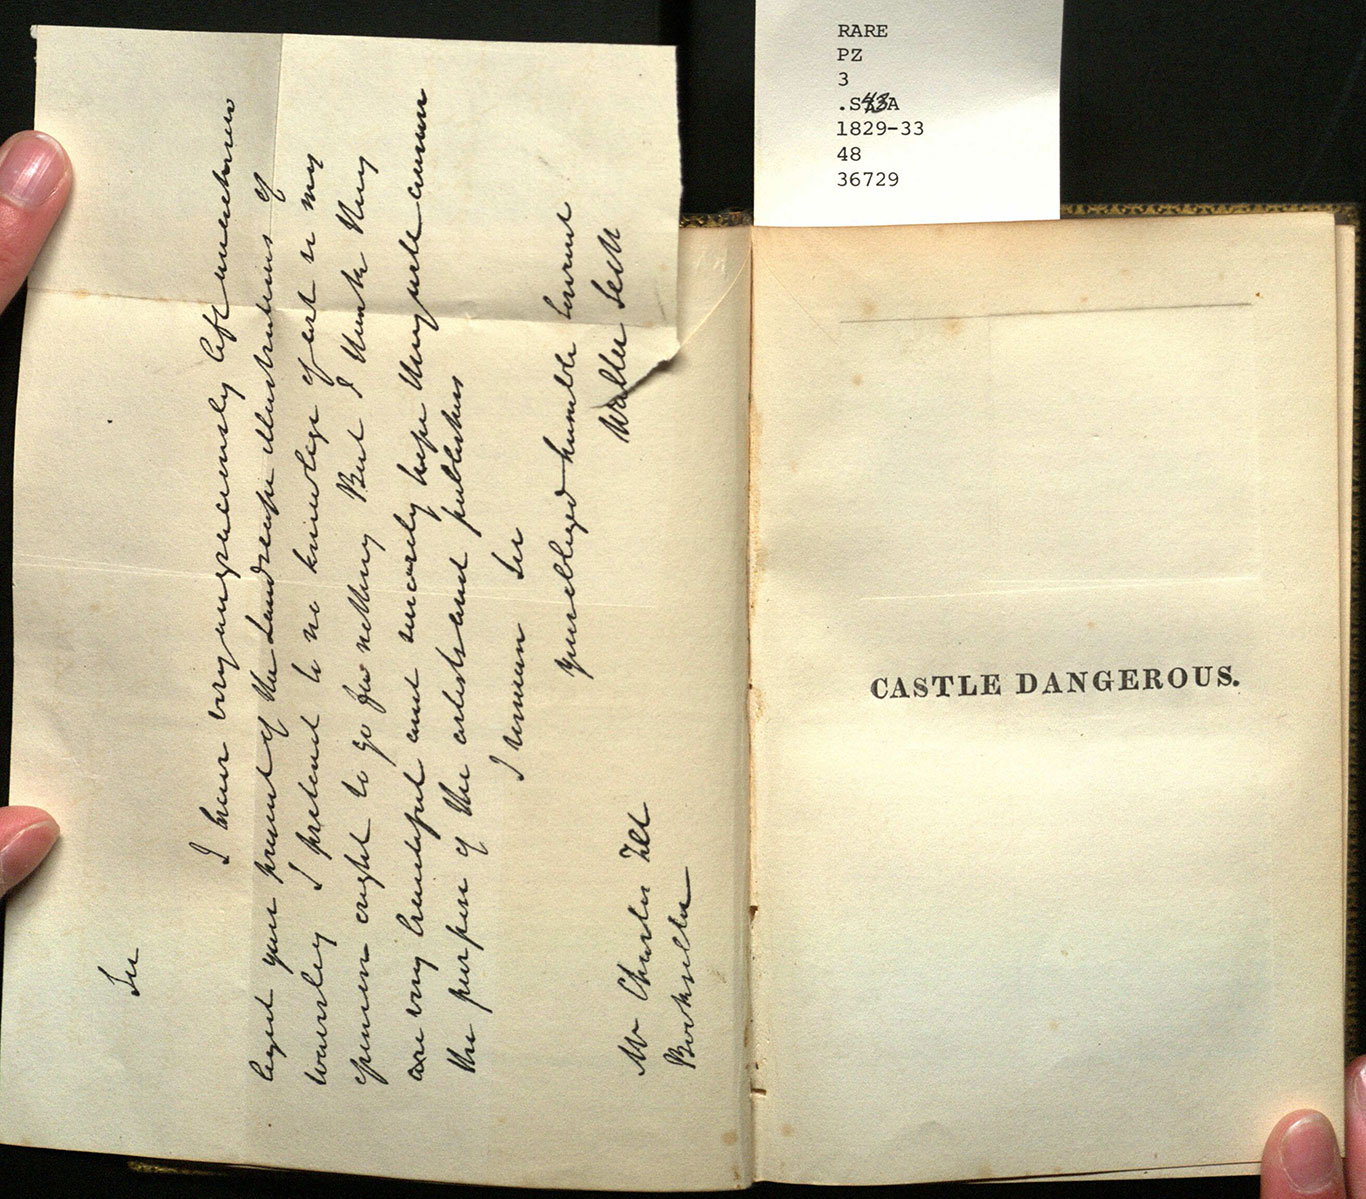 Sir
I have very ungraciously left unacknow
leged your present of the Landscape illustrations of
Waverley I pretend to no knowlege of art so my
opinion ought to go for nothing But I think they
are very beautiful and sincerely hope they will answer
the purpose of the artists and publishers
I remain Sir
your obliged humble servant
Walter Scott
Mr Charles Tilt
Bookseller
RARE
PZ
3
.S43A
1829-33
48
36729
CASTLE DANGEROUS.